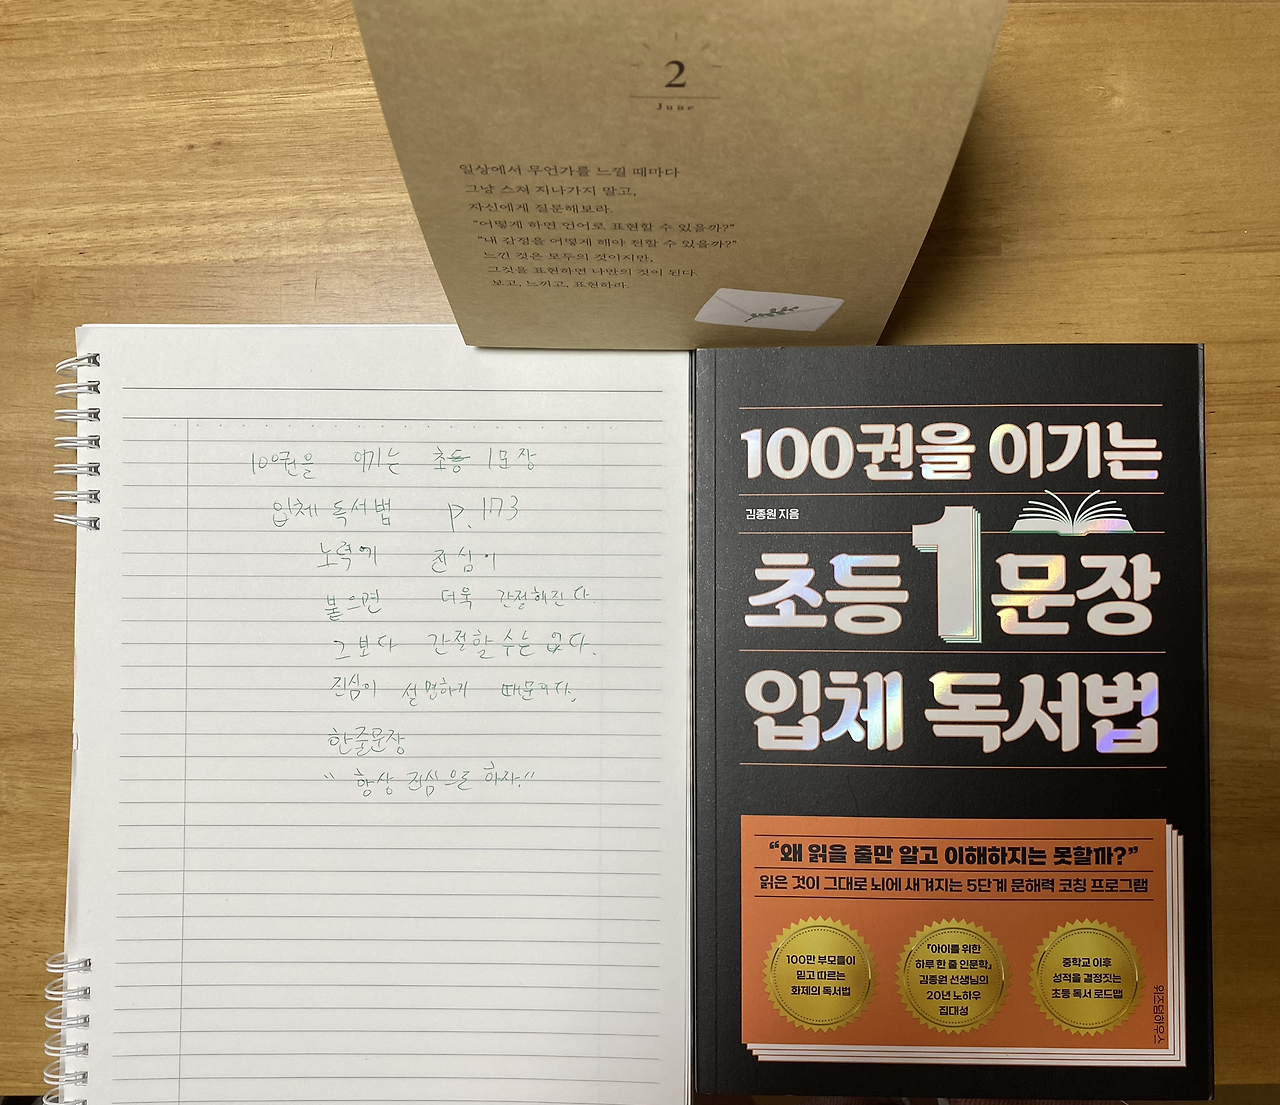 2
June
일상에서 무언가를 느낄 때마다
그냥 스쳐 지나가지 말고,
자신에게 질문해보라.
"어떻게 하면 언어로 표현할 수 있을까?"
"내 감정을 어떻게 해야 전할 수 있을까?"
느낀 것은 모두의 것이지만,
그것을 표현하면 나만의 것이 된다.
보고, 느끼고, 표현하라.
100권을 이기는 초등 1문장
입체 독서법 p.173
노력에 진심이
붙으면 더욱 간절해진다.
그보다 간절할 수는 없다.
진심이 설명하기 때문이다.
한줄문장
"항상 진심으로 하자."
100권을 이기는
김종원 지음
초등 1문장
입체 독서법
"왜 읽을 줄만 알고 이해하지는 못할까?"
읽은 것이 그대로 뇌에 새겨지는 5단계 문해력 코칭 프로그램
100만 부모들이
믿고 따르는
화제의 독서법
『아이를 위한
하루 한 줄 인문학』
김종원 선생님의
20년 노하우
집대성
중학교 이후
성적을 결정짓는
초등 독서 로드맵
위즈덤하우스